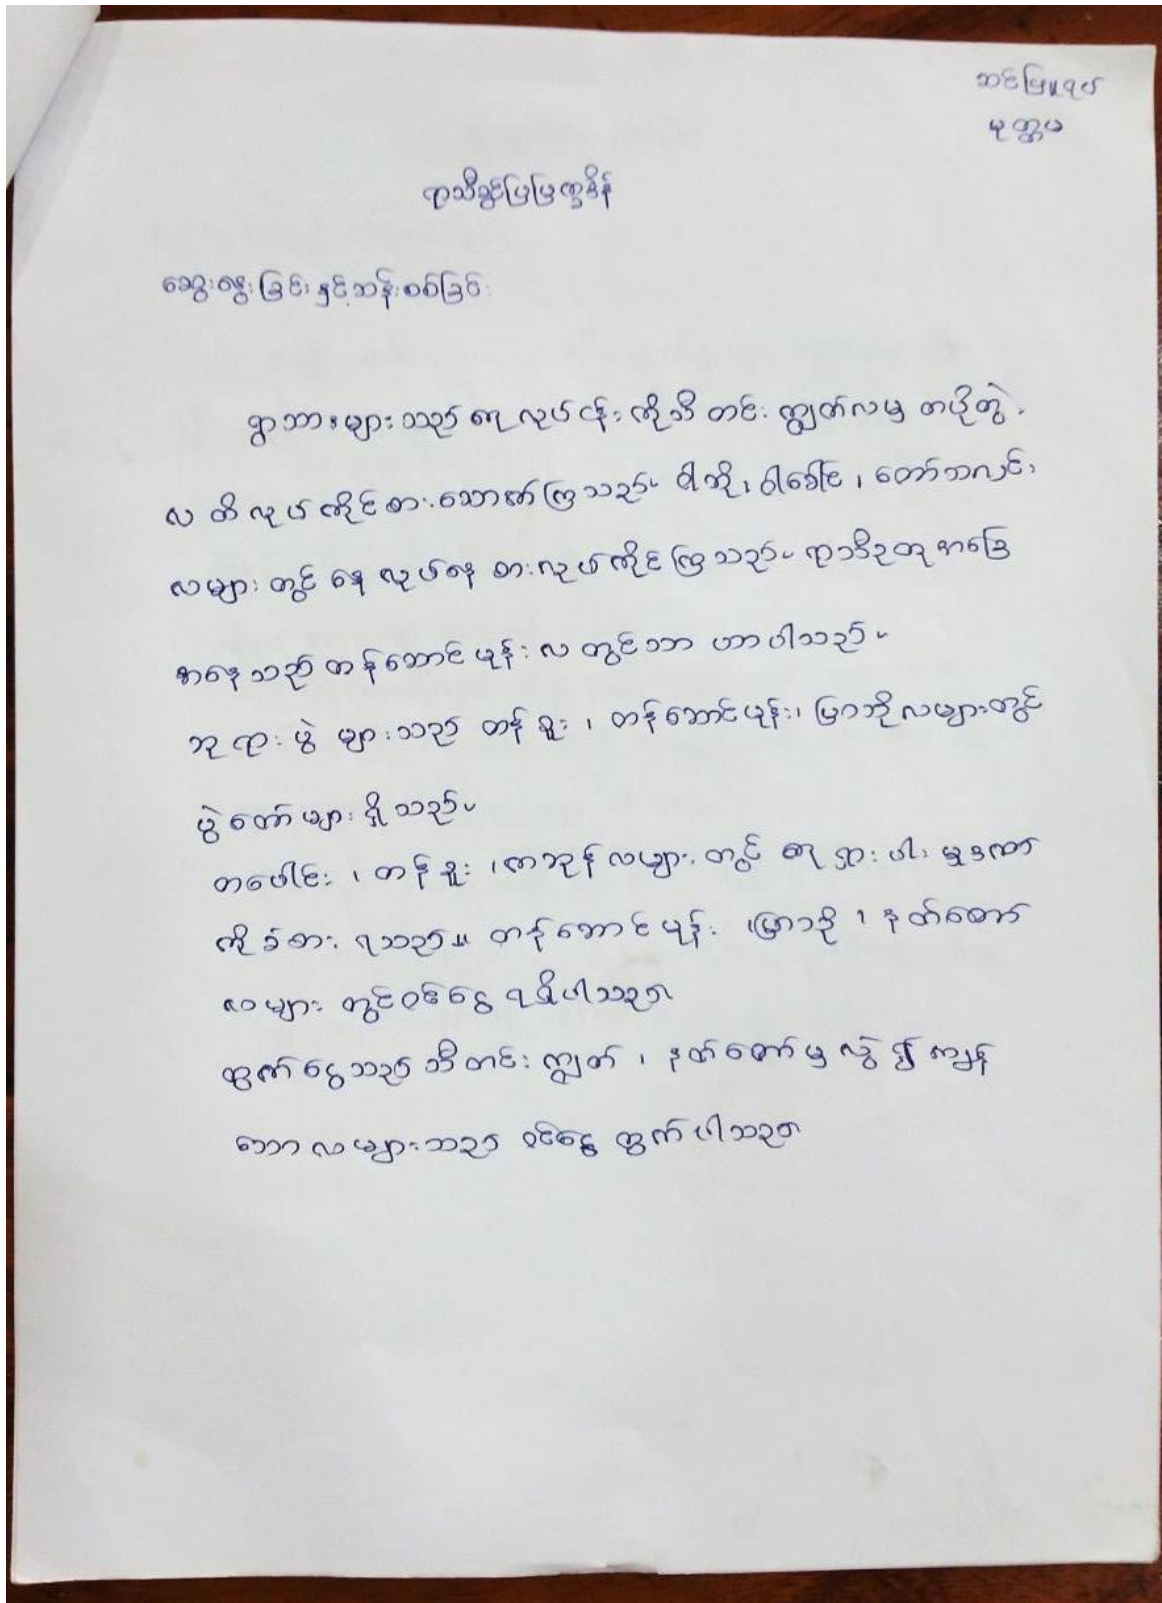 ဆင်ဖြူရပ်
မုတ္တမ
ရာသီခွင်ပြပြက္ခဒိန်
ဆွေးနွေးခြင်းနှင့်ဆန်းစစ်ခြင်း
ရွာသားများသည် ရေလုပ်ငန်းကိုသီတင်းကျွတ်လမှ တပို့တွဲ
လထိလုပ်ကိုင်စားသောက်ကြသည်။ ဝါဆို၊ ဝါခေါင်၊ တော်သလင်း
လများတွင် နေ့လုပ်နေ့စားလုပ်ကိုင်ကြသည်။ ရာသီဥတုအခြေ
အနေသည် တန်ဆောင်မုန်းလတွင်သာ ဟာပါသည်။
ဘုရားပွဲများသည် တန်ခူး၊ တန်ဆောင်မုန်း၊ ပြာသိုလများတွင်
ပွဲတော်များရှိသည်။
တပေါင်း၊ တန်ခူး၊ ကဆုန်လများတွင် ရေရှားပါးမှုဒဏ်
ကိုခံစားရသည်။ တန်ဆောင်မုန်း၊ ပြာသို၊ နတ်တော်
လများတွင်ဝင်ငွေရရှိပါသည်။
ထွက်ငွေသည် သီတင်းကျွတ်၊ နတ်တော်မှလွဲ၍ ကျန်
သောလများသည် ဝင်ငွေထွက်ပါသည်။